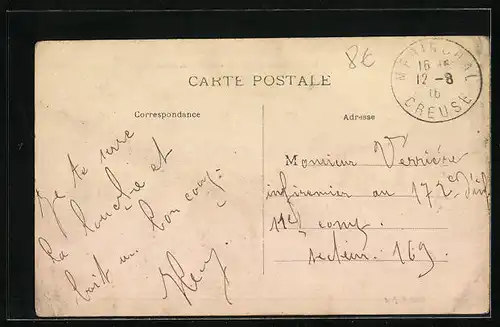 8€
MAINSAT
16
12-8
16
CREUSE
CARTE POSTALE
Correspondance
Adresse
Je te serre
la louche et
bois un bon coup
Henry.
Monsieur Verrière
infirmier au 172e d'Inf
11e comp
secteur. 169.